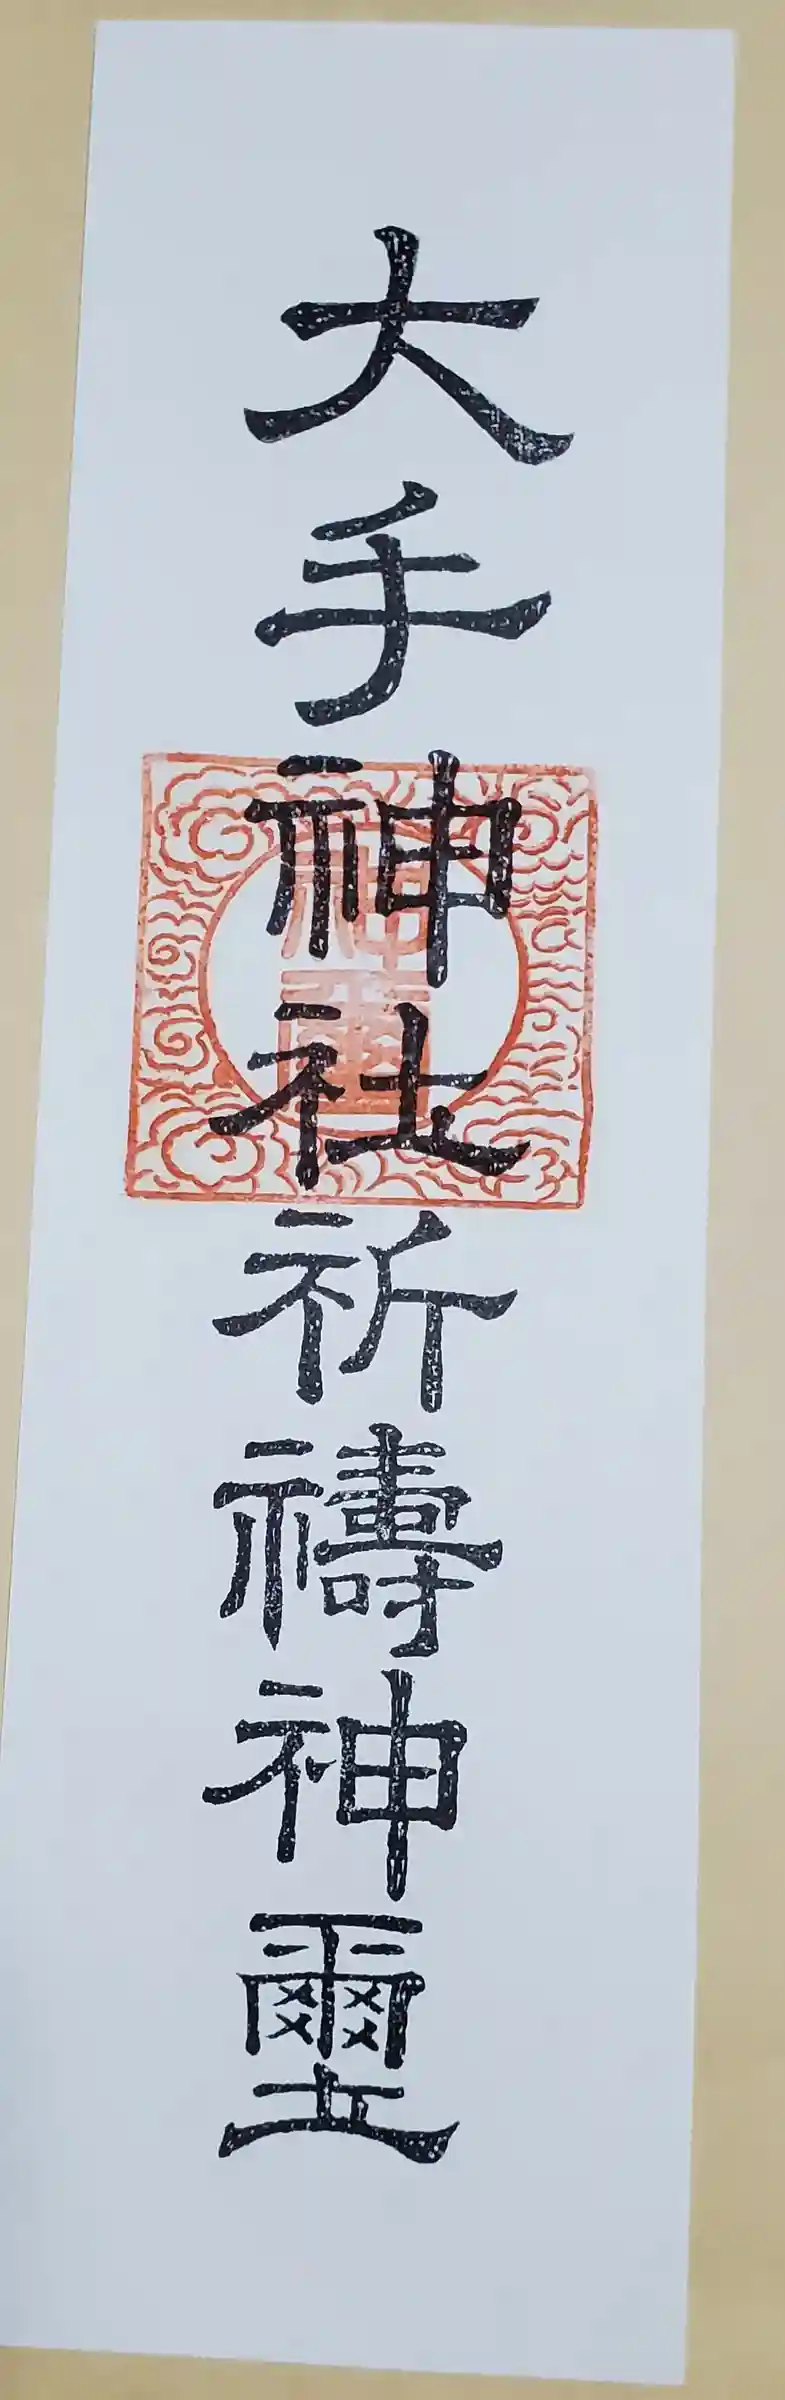 大手神社祈禱神璽
神璽